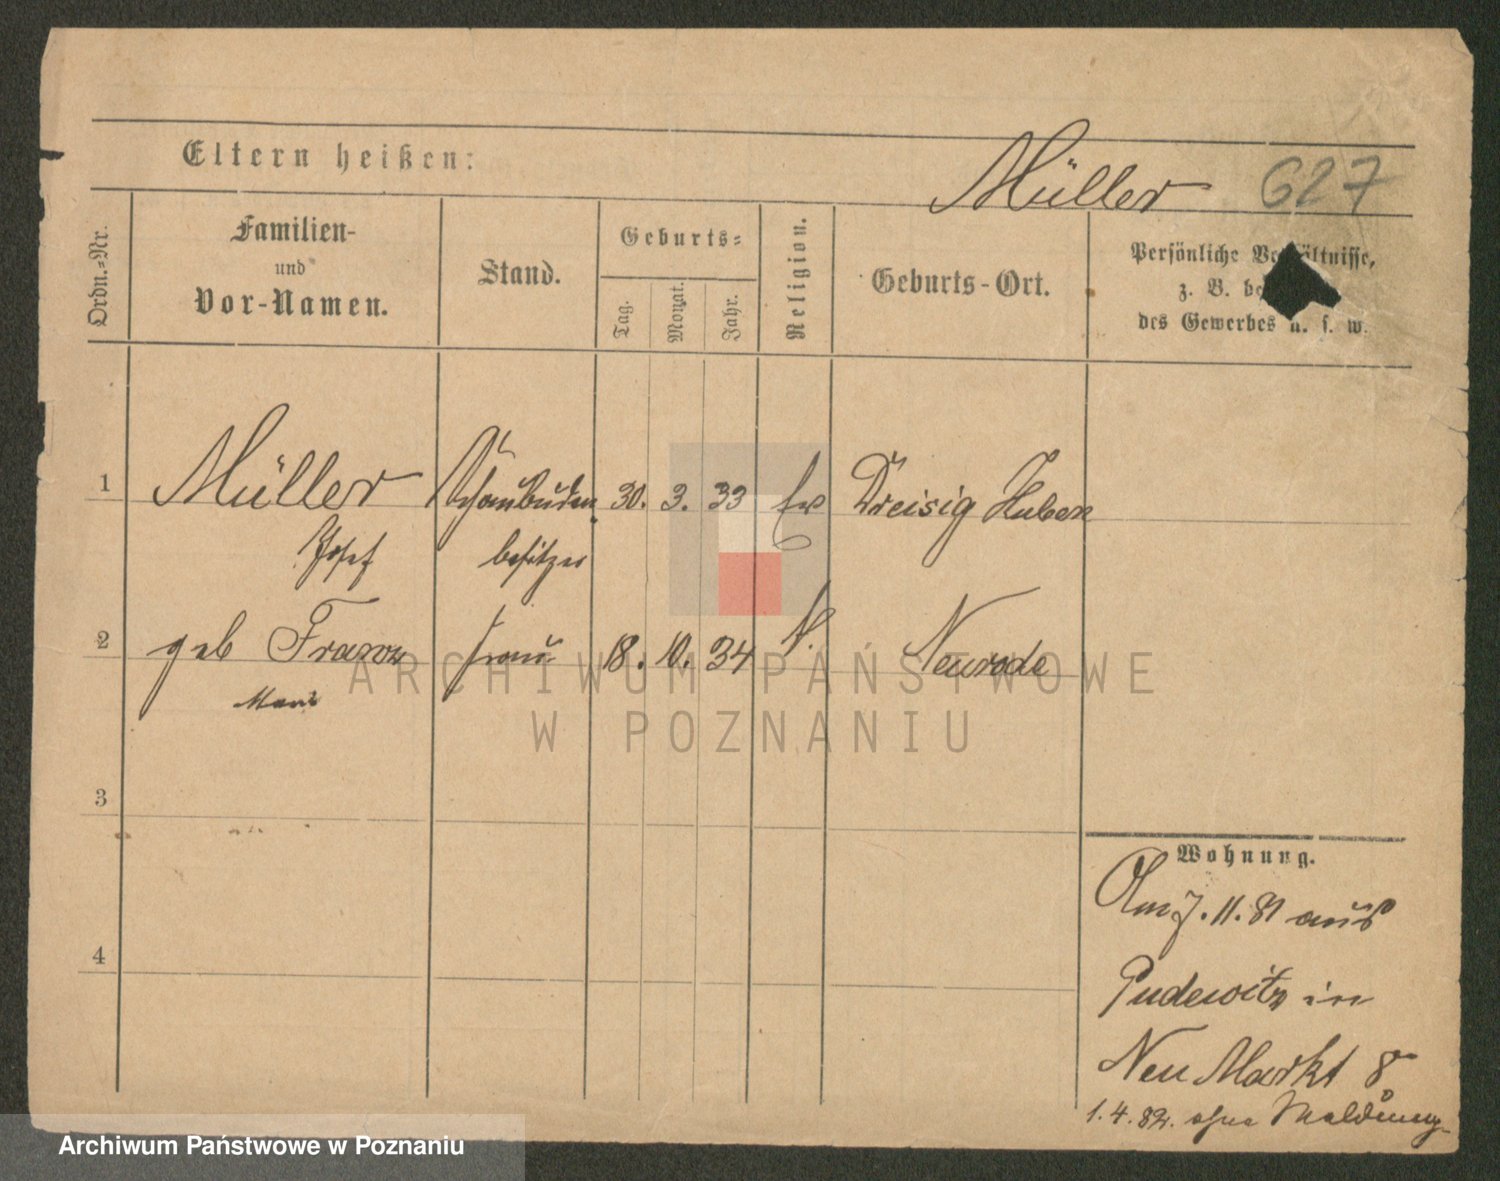 Eltern heißen:
Müller 627
Ordn.-Nr.
Familien-
und
Vor-Namen.
Stand.
Geburts-
Tag.
Monat.
Jahr.
Religion.
Geburts-Ort.
Persönliche Verhältnisse,
z. B.
des Gewerbes u. s. w.
1 Müller Schaubuden 30. 3. 33 Ev Dreisig Huben
Josef besitzer
2 geb Frau 18. 10. 34 K. Neurode
3
4
Wohnung.
Am 7. 11. 81 aus
Pudewitz in
Neu Markt 8
1. 4. 82. ohne Meldung
ARCHIWUM PAŃSTWOWE
W POZNANIU
Archiwum Państwowe w Poznaniu